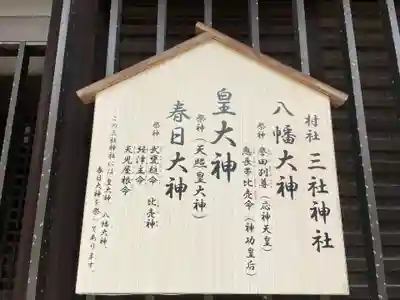 村社 三社神社
八幡大神
祭神 誉田別尊(応神天皇)
息長帯比売命(神功皇后)
皇大神
祭神(天照皇大神)
春日大神
祭神 武甕槌命 比売神
経津主命
天児屋根命
この三社神社には皇大神 八幡大神
春日大神を祭ってあります。